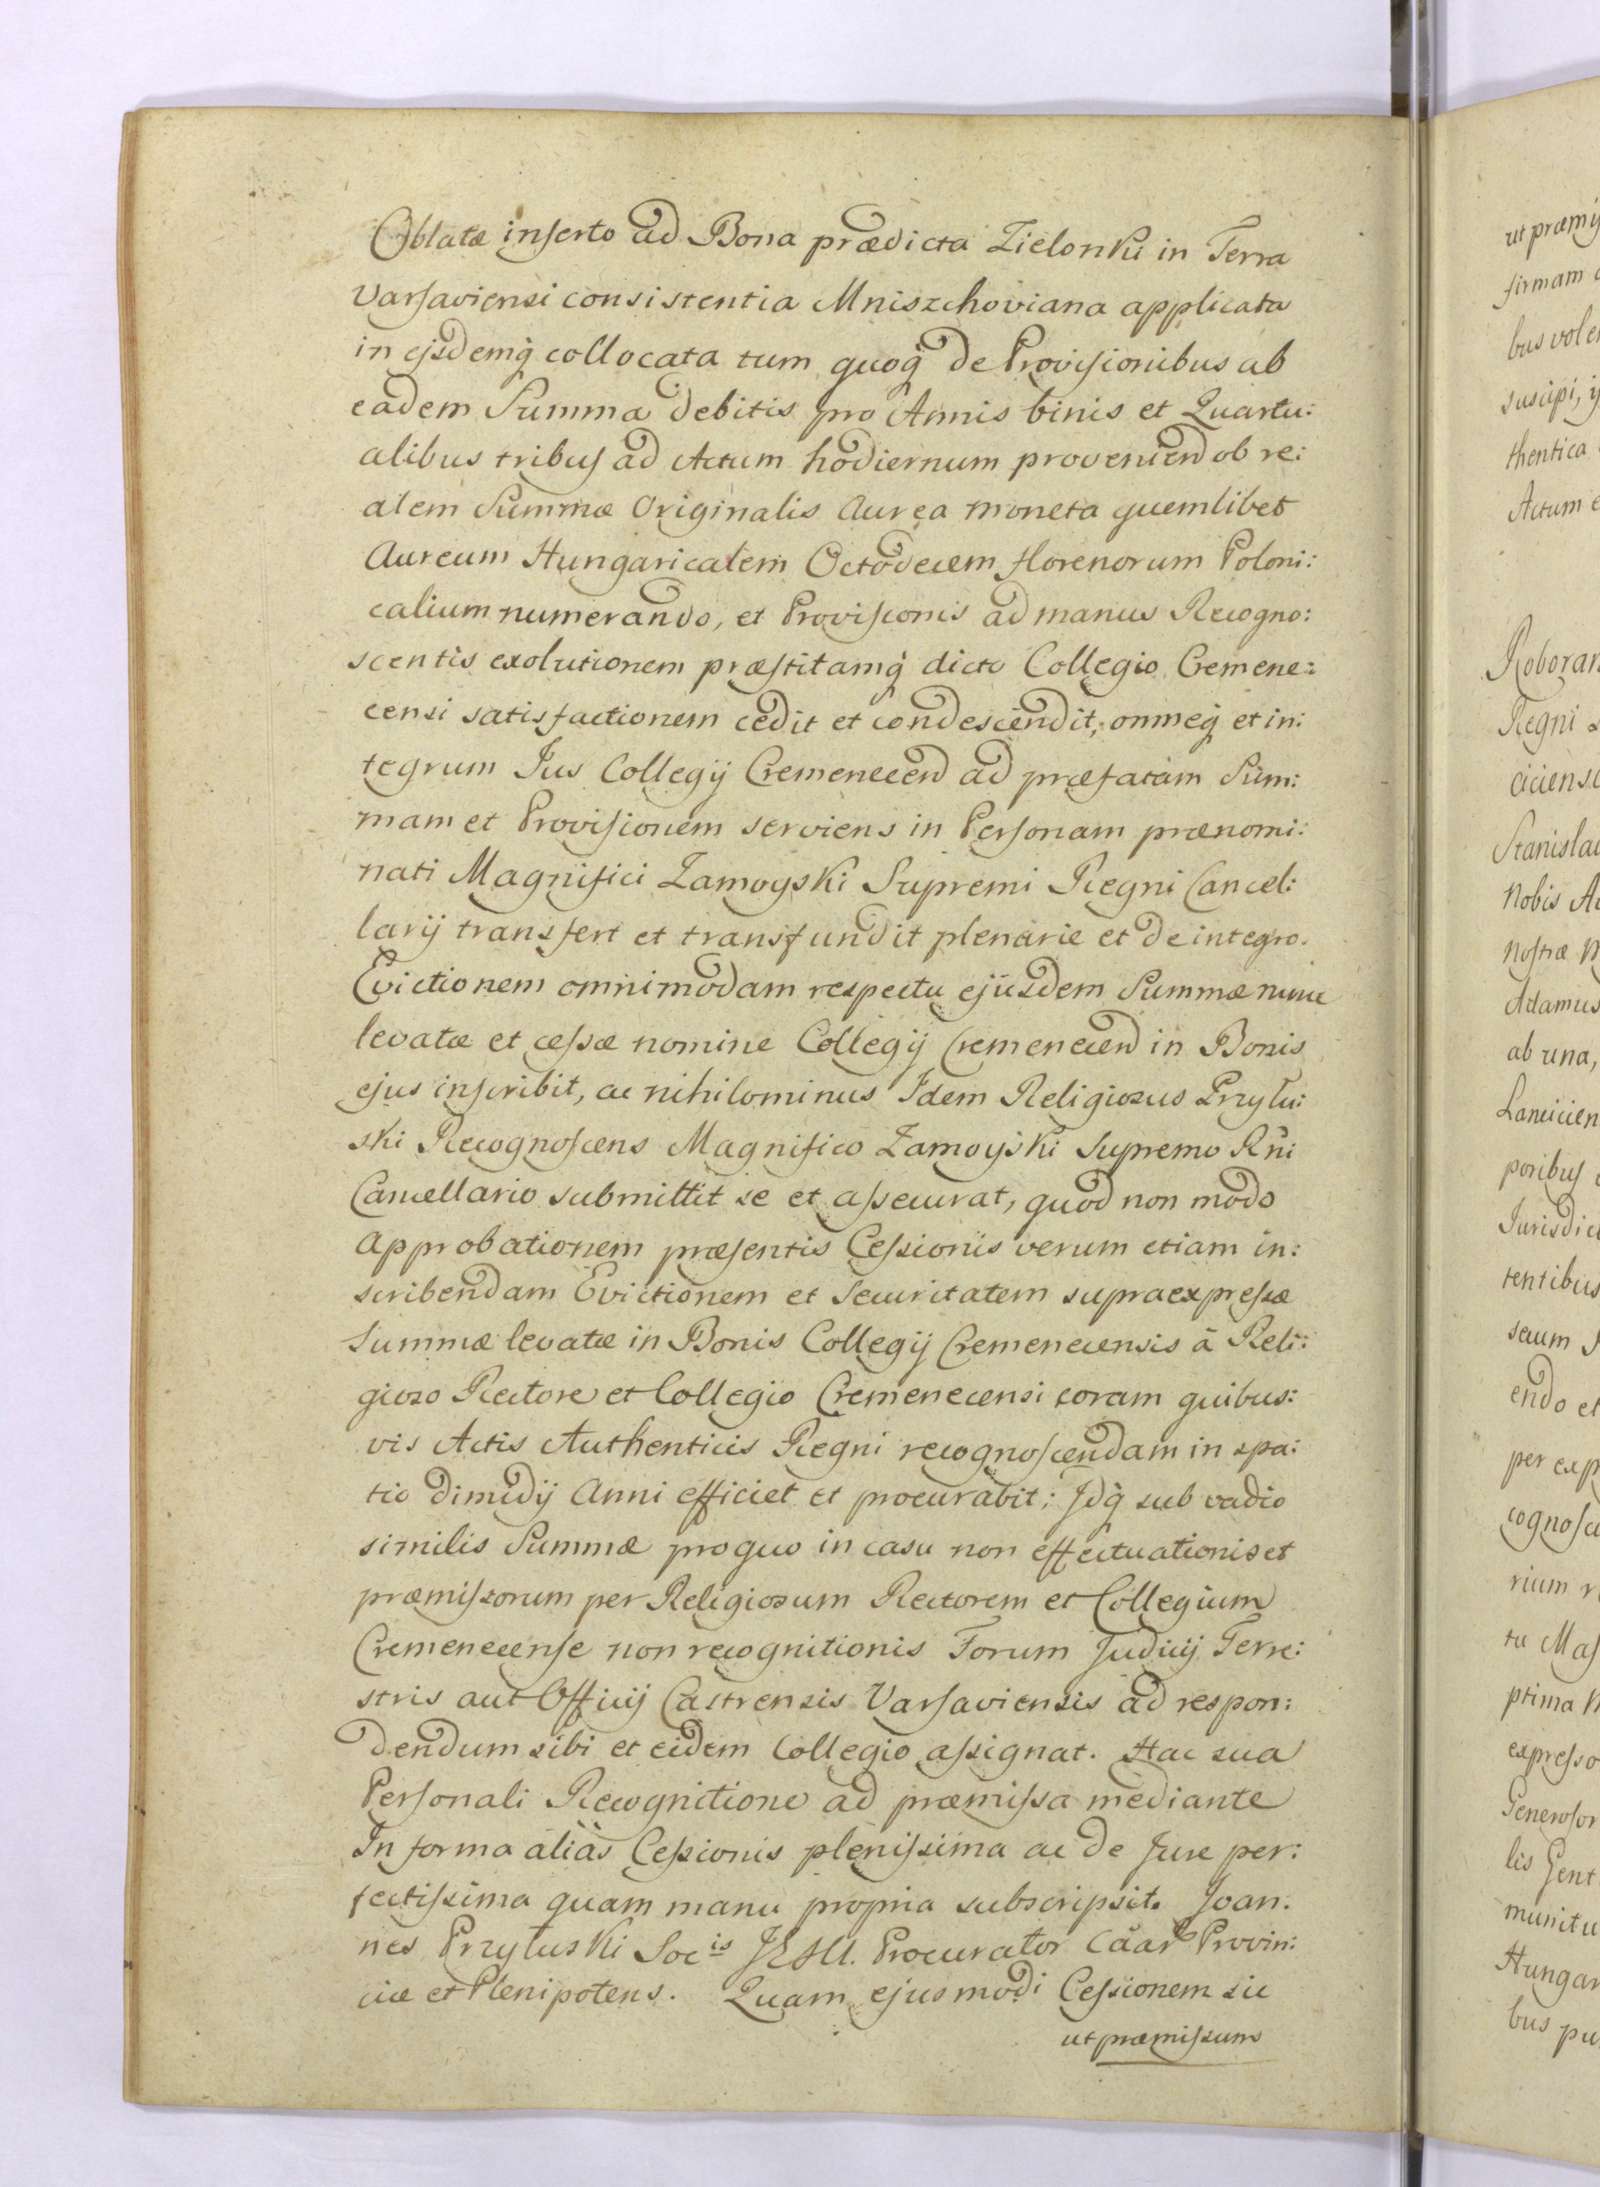 Oblatæ inserto ad Bona prædicta Zielonki in Terra
Varsaviensi consistentia Mniszchoviana applicata
in ejsdemq̀ collocata tum quoq̀ de Provisionibus ab
eadem Summa debitis pro Annis binis et Quartu:
alibus tribus ad Actum hodiernum provenien ob re:
alem Summæ Originalis Aurea moneta quemlibet
Aureum Hungaricalem Octodecem florenorum Poloni:
calium numerando, et Provisionis ad manus Recogno:
scentis exolutionem præstitamq̀ dicto Collegio Cremene:
censi satisfactionem cedit et condescendit, omneq̀ et in:
tegrum Jus Collegij Cremenecen ad præfatam Sum:
mam et Provisionem serviens in Personam prænomi:
nati Magnifici Zamoyski Supremi Regni Cancel:
larij transfert et transfundit plenarie et de integro.
Evictionem omnimodam respectu ejusdem Summæ nunc
levatæ et cessæ nomine Collegij Cremenecen in Bonis
ejus inscribit, ac nihilominus Idem Religiosus Przyłu:
ski Recognoscens Magnifico Zamoyski Supremo Rni
Cancellario submittit se et assecurat, quod non modo
Approbationem præsentis Cessionis verum etiam in:
scribendam Evictionem et Securitatem supraexpressæ
Summæ levatæ in Bonis Collegij Cremenecensis à Reli:
gioso Rectore et Collegio Cremenecensi coram quibus:
vis Actis Authenticis Regni recognoscendam in spa:
tio dimidij Anni efficiet et procurabit; Idq̀ sub vadio
similis Summæ pro quo in casu non effectuationis et
præmissorum per Religiosum Rectorem et Collegium
Cremenecense non recognitionis Forum Judicij Terre:
stris aut Officij Castrensis Varsaviensis ad respon:
dendum sibi et eidem Collegio assignat. Hac sua
Personali Recognitione ad præmissa mediante
In forma aliàs Cessionis plenissima ac de Jure per:
fectissima quam manu propria subscripsit. Joan:
nes Przyłuski Soc<sup>is</sup> JESU. Procurator Provin:
ciæ et Plenipotens. Quam ejusmodi Cessionem sic
ut præmissum
ut præmi
firmam
bus
suscipi,
thentica
Actum
Roboran
Regni
ciciens
Stanislau
Nobis
nostræ
Adamus
ab una,
Lancicien
poribus
Jurisdic
tentibus
secum
endo et
per exp
cognosc
rium
tu Maj
ptima
expresso
Generosor
lis Gent
munitu
Hungar
bus pu